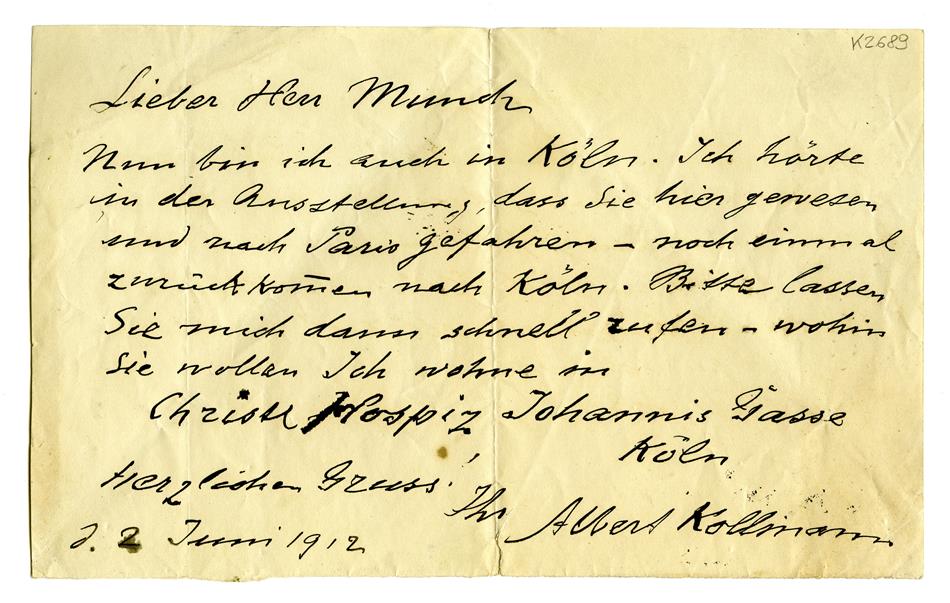 K2689
Lieber Herr Munch
Nun bin ich auch in Köln. Ich hörte
in der Ausstellung, dass Sie hier gewesen
und nach Paris gefahren – noch einmal
zurückkom̅en nach Köln. Bitte lassen
Sie mich dann schnell rufen – wohin
Sie wollen Ich wohne in
Christl Hospiz Johannis Gasse
Köln
Herzlichen Gruss!
Ihr Albert Kollmann
d. 2 Juni 1912